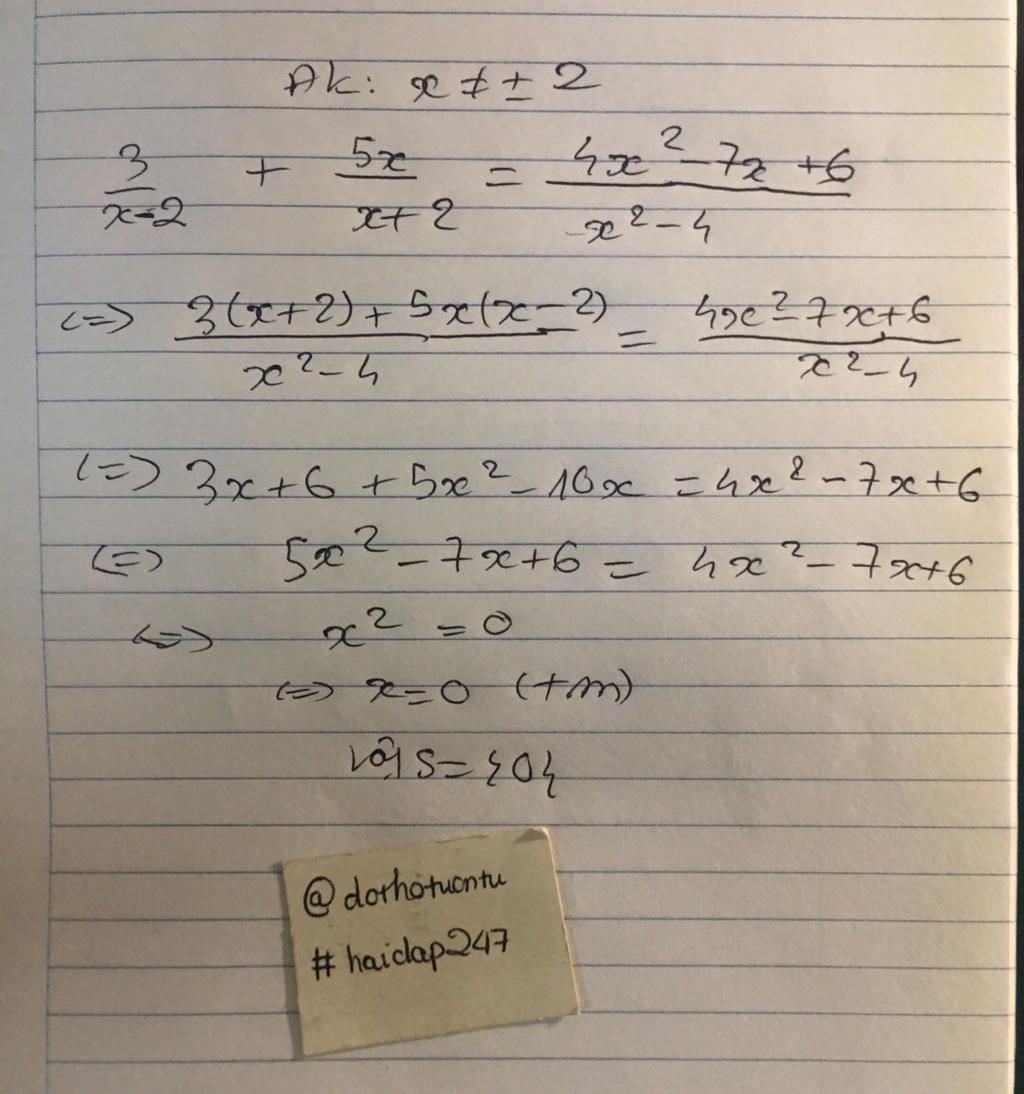 Đk: x ≠ ± 2
3/(x-2) + 5x/(x+2) = (4x² - 7x + 6)/(x² - 4)
<=> (3(x+2) + 5x(x-2))/(x² - 4) = (4x² - 7x + 6)/(x² - 4)
(=) 3x + 6 + 5x² - 10x = 4x² - 7x + 6
(=) 5x² - 7x + 6 = 4x² - 7x + 6
<=> x² = 0
<=> x = 0 (tm)
Vậy S = {0}
@dorhotuontu
#haidap247